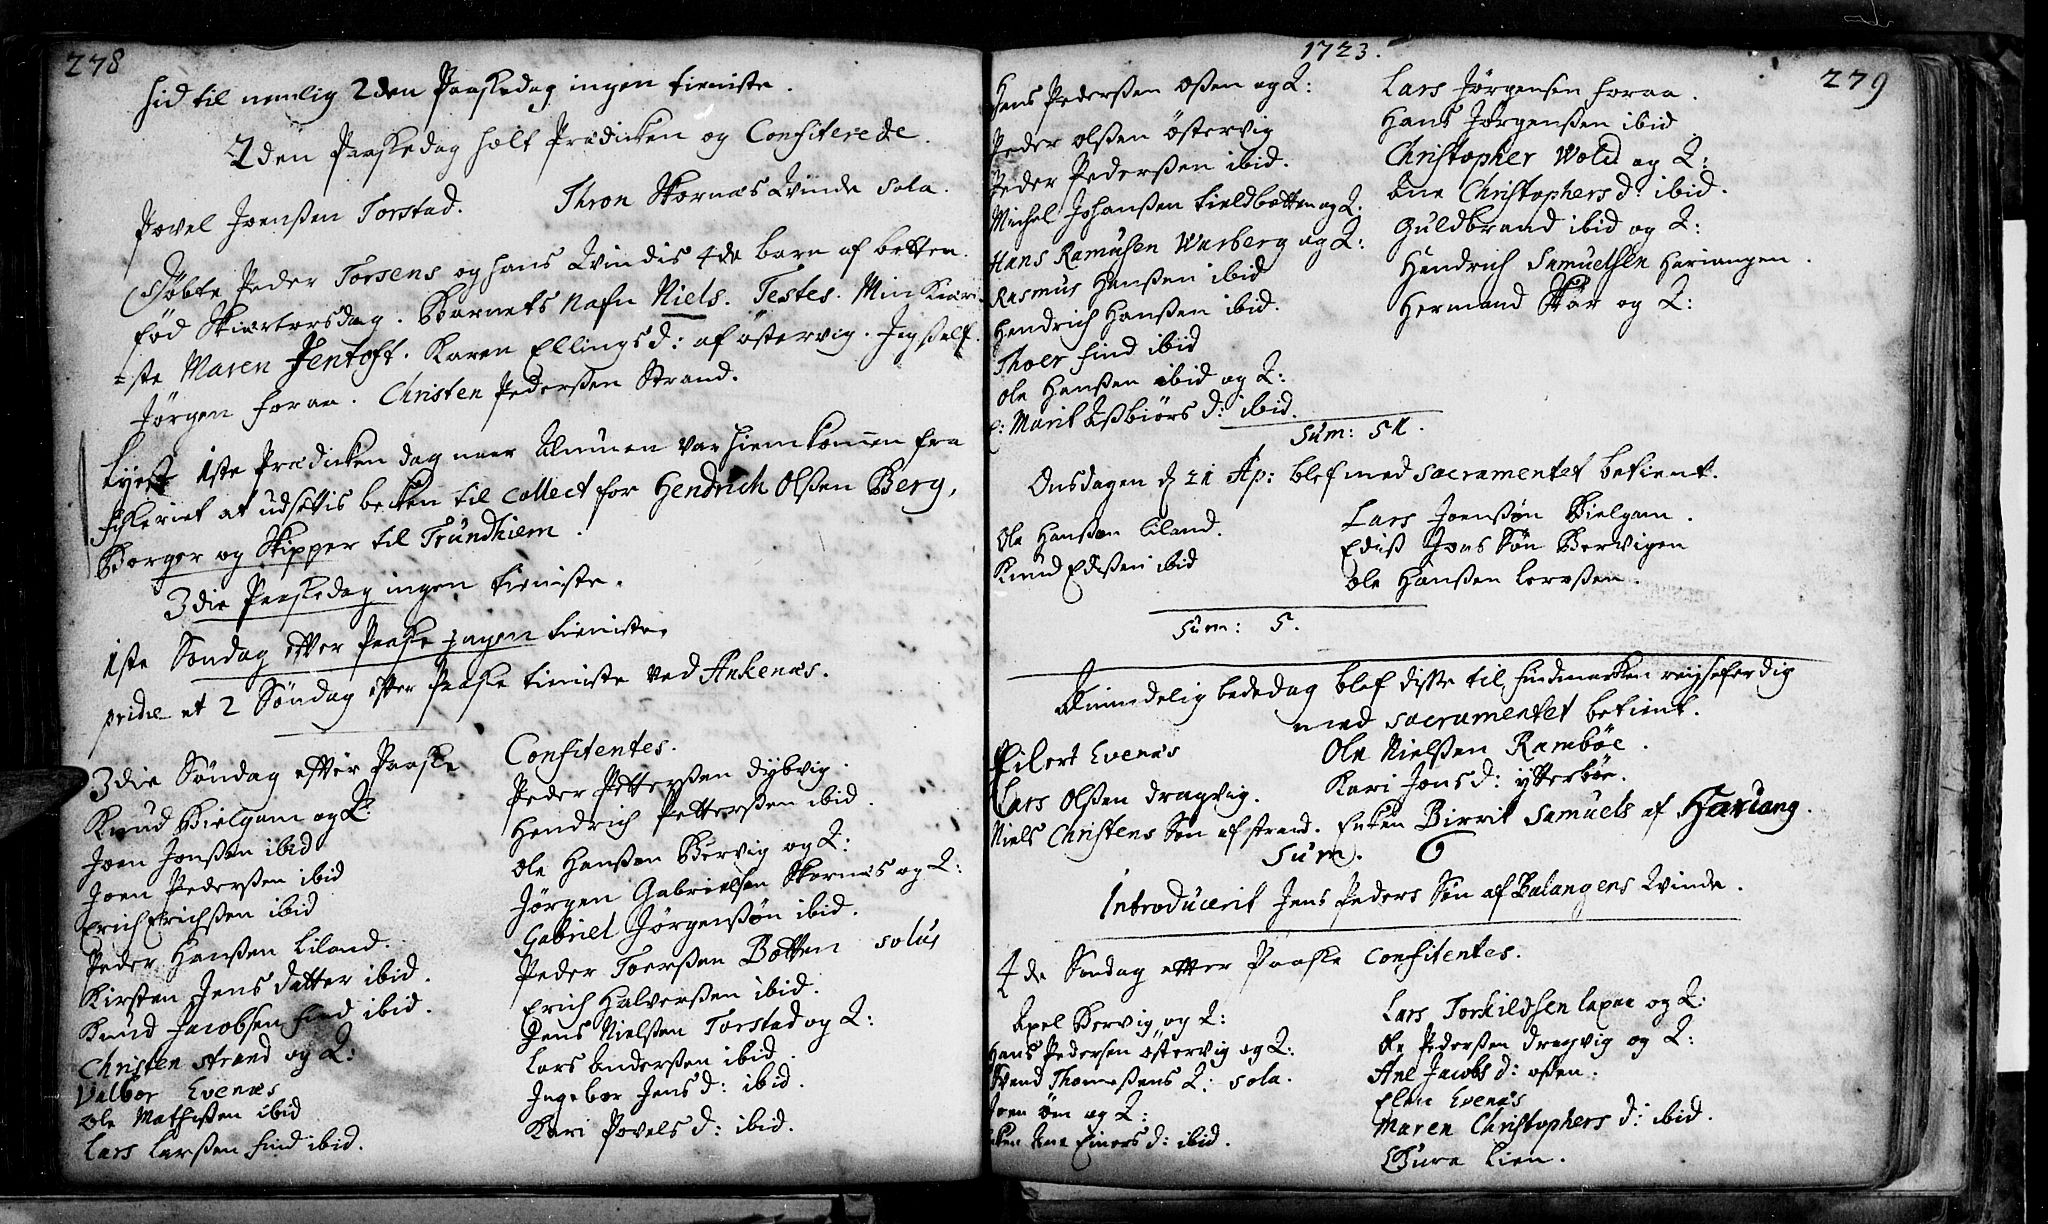 278
hid til nemlig 2den Paaskedag ingen tieniste.
2den Paaskedag holt Prædicken og Confiterede.
Povel Joenßen Torstad. Thron Skornæs Qvinde sola.
Døbte Peder Torsens og hans Qvindis 4de barn af botten
fød Skiertorsdag. Barnets Nafn Niels. Testes. Min Kiæri-
=ste Maren Jentoft. Karen Ellings d: af östervig. Jegßelf.
Jörgen foraa. Christen Pederßen Strand.
Lyst 1ste Prædicken dag naar Almuen var hiemkommen fra
fiskeriet at udsettis becken til Collect for Hendrich Olßen Berg,
Borger og Skipper til Trundhiem.
3die Paaskedag ingen tieniste.
1ste Søndag efter Paaske Jngen tieniste.
pridie et 2 Söndag efter Paaske tieniste ved Ankenæs.
3die Söndag efter Paaske Confitentes.
Knud Bielgam og Q:
Joen Jonßen ibid
Joen Pederßen ibid
Erich Erichßen ibid
Peder Hanßen Liland.
Kirsten Jens datter ibid.
Knud Jacobsen find ibid.
Christen strand og Q:
Valbor Evenæs
Ole Mathißen ibid
Lars Larßen find ibid.
Peder Petterßen dybvig.
Hendrich Petterßen ibid.
Ole Hanßen Bervig og Q:
Jörgen Gabrielsen Skornæs og Q:
Gabriel Jörgenßön ibid.
Peder Toerßen Botten solus
Erich Halverßen ibid.
Jens Nielßen Torstad og Q:
Lars Anderßen ibid.
Ingebor Jens d: ibid.
Kari Povels d: ibid.
1723.
279
Hans Pederßen oßen og Q:
Peder olßen östervig
Peder Pederßen ibid.
Michel Johanßen fieldbotten og Q.
Hans Ramusen Warberg og Q:
Rasmus Hanßen ibid
Hendrich Hanßen ibid.
Thoer find ibid
Ole Hanßen ibid og Q:
Marit Aßbiörs d: ibid.
Lars Jørgensen foraa.
Hans Jörgenßen ibid
Christopher Wold og Q:
Ane Christophers d: ibid.
Guldbrand ibid og Q:
Hendrich Samuelsen Hariangen.
Hermand Skar og Q:
Sum: 51.
Onsdagen d 21 Ap: blef med Sacramentet betient.
Ole Hanßen Liland.
Knud Edißen ibid
Lars Joenßøn Bielgam.
Ediß Jons Søn Bervigen
Ole Hanßen
Sum: 5.
Almindelig bededag blef diße til findmarken reyseferdig
med Sacramentet betient.
Eilert Evenæs
Lars Olßen dragvig.
Ole Nielßen Rambøe.
Kari Jons d: ytterböe.
Niels Christens Søn af strand. Enken Birrit Samuels af Hariang.
Sum. 6
Introducerit Jens Peders Søn af Balangens Qvinde.
4de Søndag efter Paaske Confitentes.
Axel Bervig og Q:
Hans Pedersen östervig og Q:
Svend Thomaßens Q: sola.
Joen öm og Q:
Ane Einers d: ibid.
Lars Torkildsen laxaa og Q:
Ole Pederßen dragvig og Q:
Ane Jacobs d: oßen.
Elen Evenæs
Maren Christophers d: ibid.
Thure Lien.